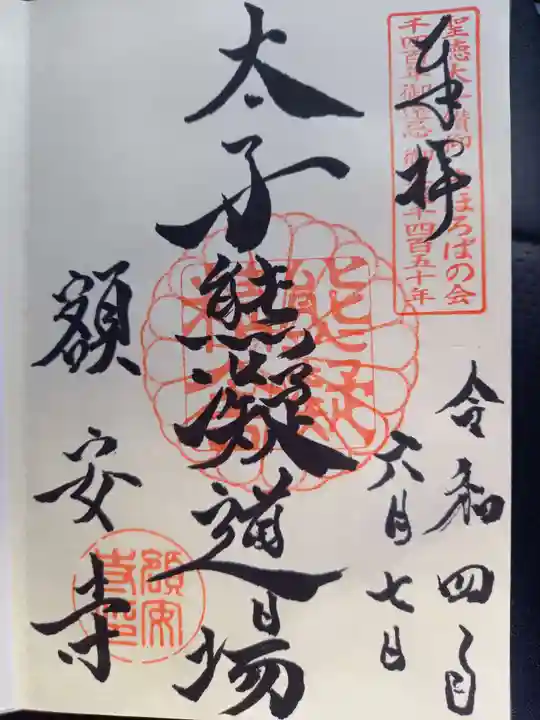 奉拝
聖徳太子讃仰 まほろばの会
千四百年御遠忌 御 千四百五十年
令和四年
六月七日
太子熊凝道場
額安寺
額安
寺印